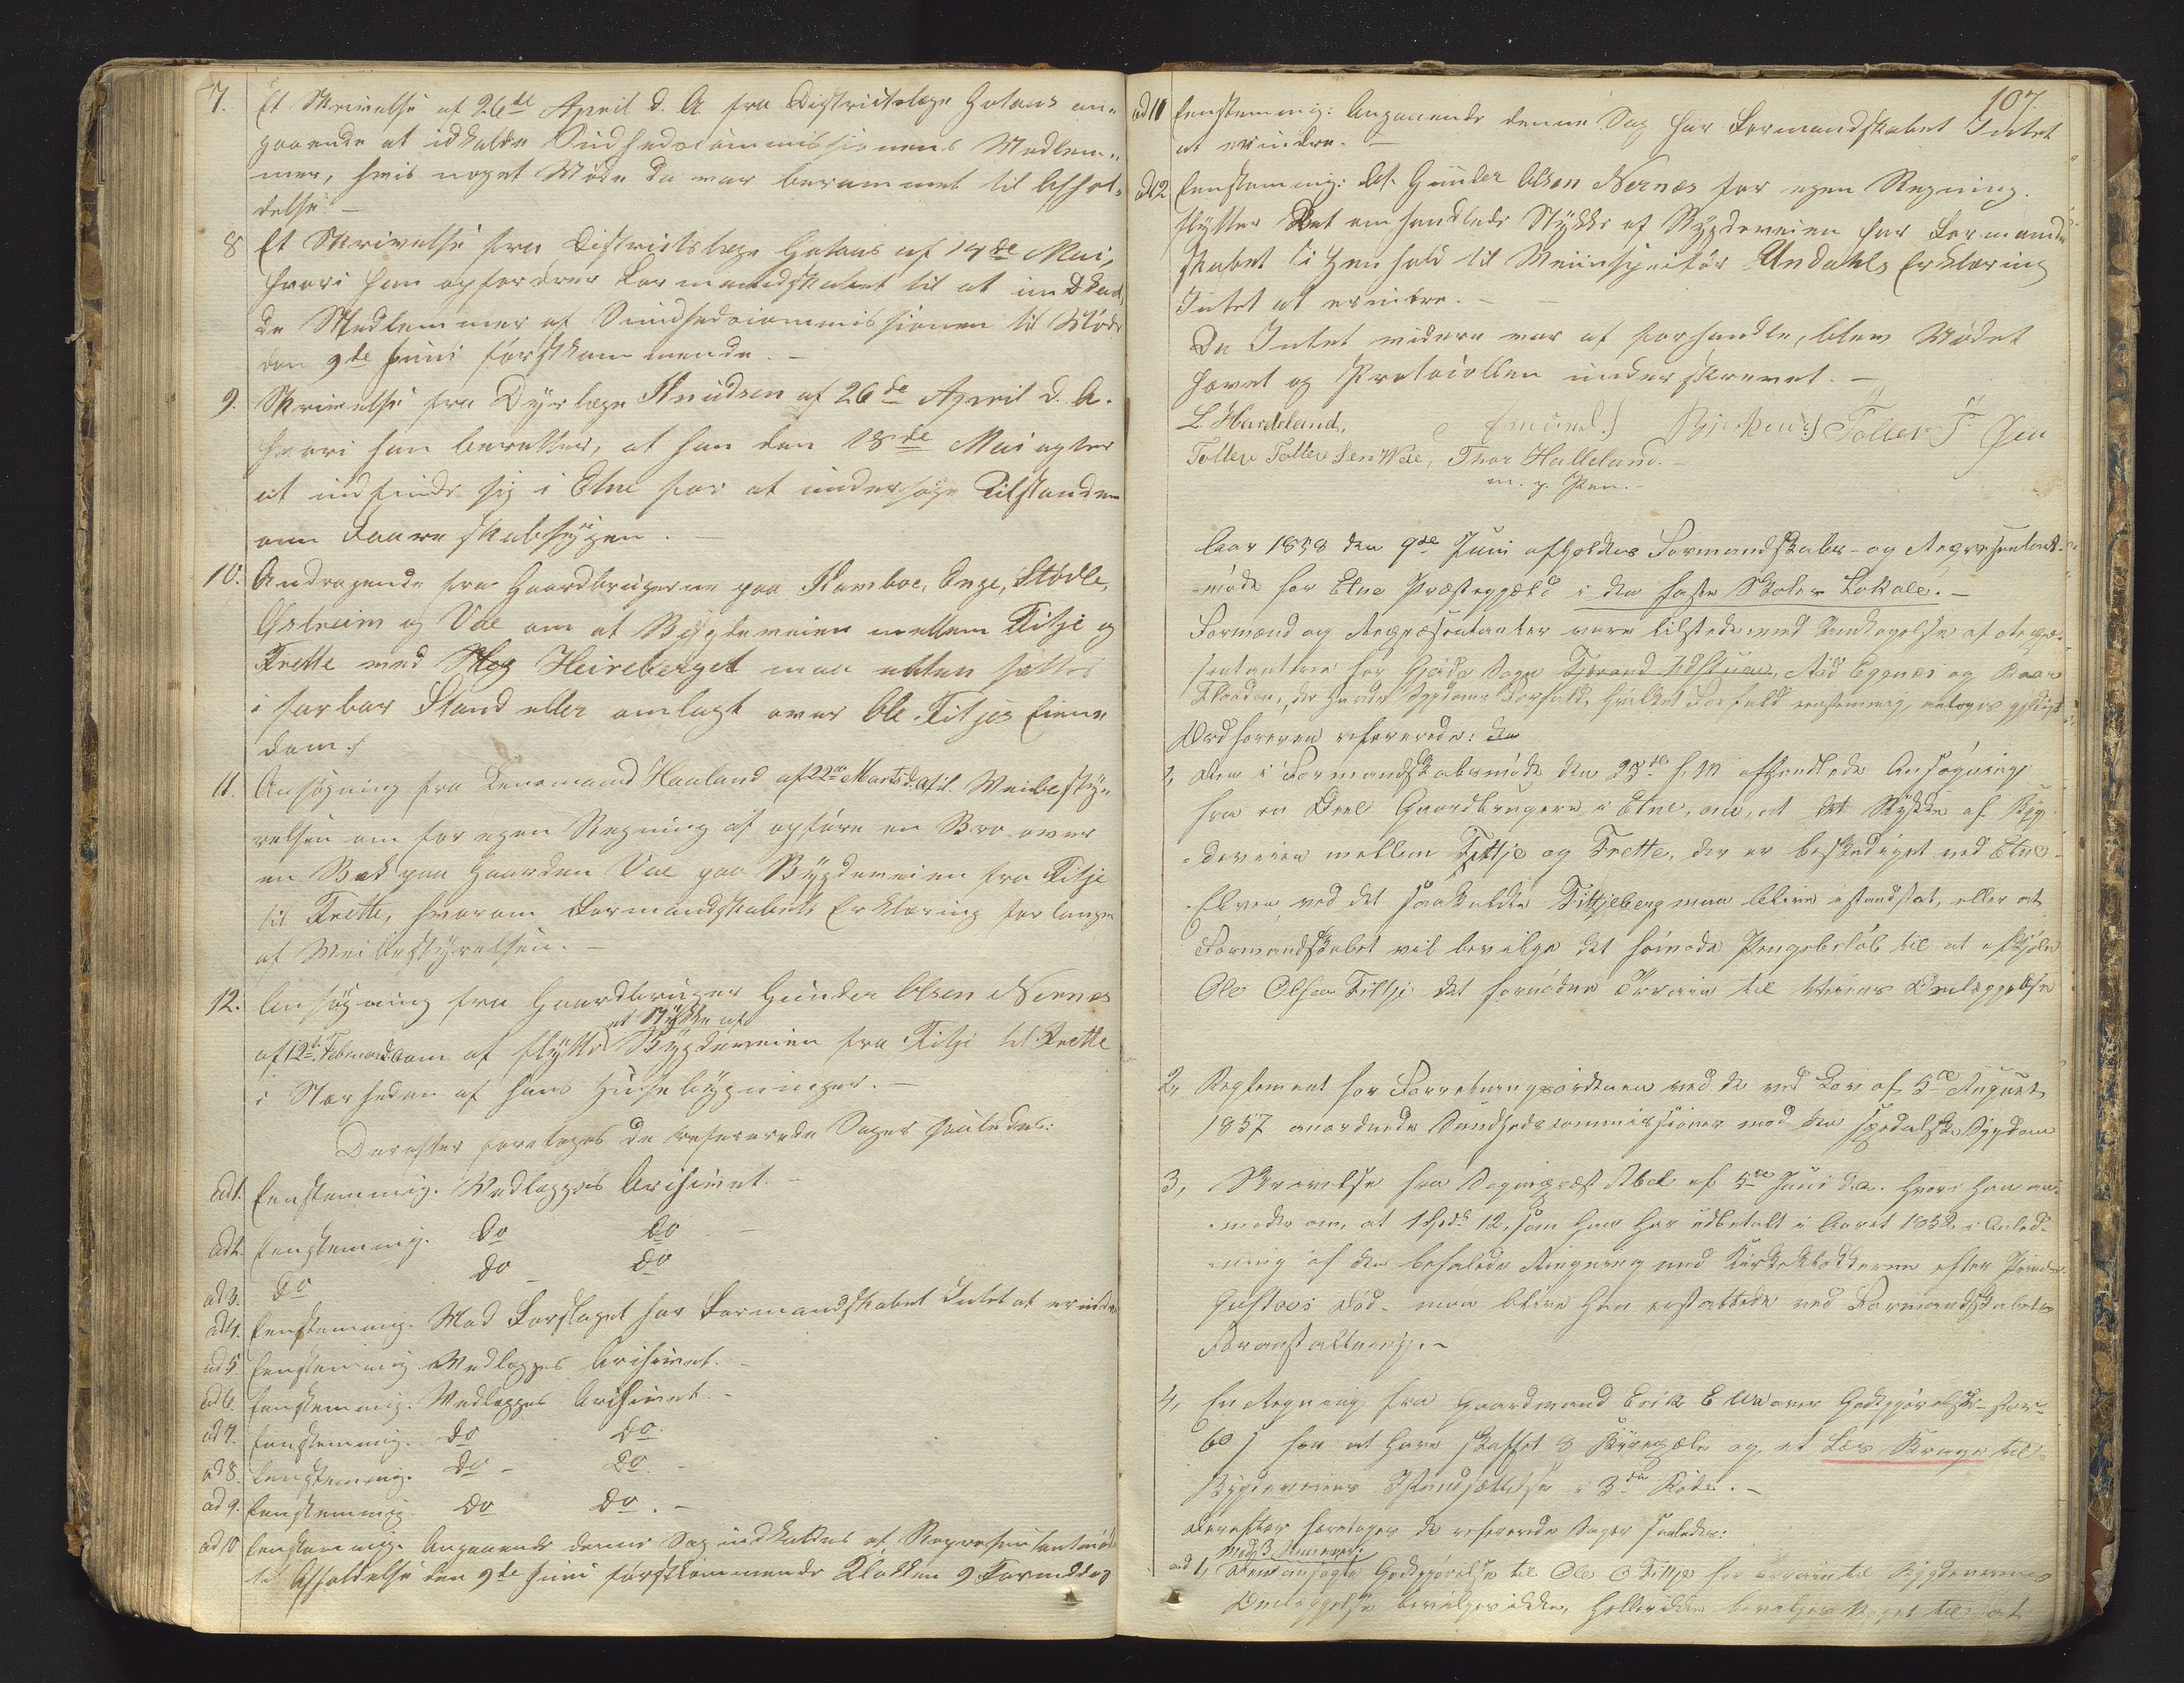 7. Et Skrivelse af 26de April d. A. fra Districtslæge Hotans an-
gaaende at idkalde Sundhedscommissionens Medlem-
mer, hvis noget Møde da var berammet til Afhol-
delse. –
8 Et Skrivelse fra Districtslæge Hotans af 14de Mai,
hvori han opfordrer Formandskabet til at indkal-
de Medlemmer af Sundhedscommissionen til Møde
den 9de Juni førstkommende. –
9. Skrivelse fra Dyrlæge Knudsen af 26de April d. A.
hvori han beretter, at han den 18de Mai agter
at indfinde sig i Etne for at undersøge Tilstanden
om Faareskabsygen. –
10. Andragende fra Gaardbrugerne paa Flamboe, Enge, Stødle,
Østreim og Vae om at Bygdeveien mellem Fitje og
Frette ved Heireberget maa enten sættes
i farbar Stand eller omlagt over Ole Fitjes Eien-
dom.
11. Ansøgning fra Lensmand Haaland af 22de Marts d. A. til Veibesty-
relsen om for egen Regning at opføre en Bro over
en Bæk paa Gaarden Vae paa Bygdeveien fra Fitje
til Frette, hvorom Formandskabets Erklæring forlanges
af Veibestyrelsen. –
12. Ansøgning fra Gaardbruger Gunder Olsen Nernes
et Stykke af
af 12te Februar d. A. om at flytte Bygdeveien fra Fitje til Frette
i Nærheden af hans Husebygninger. –
Derefter foretoges de refererede Sager saaledes:
ad 1. Eenstemmig. Vedlægges Archivet. –
ad 2. Eenstemmig. Do Do –
ad 3. Do Do – Do
ad 4. Eenstemmig. Mod Forslaget har Formandskabet Intet at erindre
ad 5 Eenstemmig Vedlægges Archivet. –
ad 6. Eenstemmig. Vedlægges Archivet. –
ad 7. Eenstemmig. Do Do.
ad 8. Eenstemmig. Do – Do. –
ad 9. Eenstemmig. Do Do. –
ad 10 Eenstemmig. Angaaende denne Sag indkaldes et Repræsentantmøde
til Afholdelse den 9de Juni førstkommende Klokken 9 Formiddag
107.
ad 11 Eenstemmig: Angaaende denne Sag har Formandskabet Intet
at erindre. –
ad 12 Eenstemmig: At Gunder Olsen Nernæs for egen Regning
flytter Det omhandlede Stykke af Bygdeveien har Formand-
skabet i Henhold til Veiinspektør Undahls Erklæring
Intet at erindre. –
Da Intet videre var at forhandle, blev Mødet
hævet og Protocollen underskrevet. –
L. Hardeland,
Tollev Tollevsen Vae, Thor Halleland.
m. p. Pen. –
Aar 1858 den 9de Juni afholdtes Formandskabs- og Repræsentant-
møde for Etne Præstegjæld i den faste Skoles Lokale. –
Formænd og Repræsentanter vare tilstede med Undtagelse af Repræ-
sentanterne for Gjerde Sogn
Ordføreren refererede:
1, Den i Formandskabsmøde den 25de f. M afhandlede Ansøgning
fra en Deel Gaardbrugere i Etne, om, at det Stykke af Byg-
deveien mellem Fittje og Frette, der er beskadiget ved Etne-
Elven, ved det saakaldte Fittjeberg maa blive istandsat, eller at
Formandskabet vil bevilge det fornødne Pengebeløb til at afkjøbe
Ole Olsen Fittje det fornødne Terrain til Veiens Omlæggelse
2, Reglement for Forretningsordenen ved de ved Lov af 5te August
1857 anordnede Sundhedscommissioner mod den spedalske Sygdom
3, Skrivelse fra Sognepræst Abel af 5te Juni d. A. hvori han an-
moder om, at 1 Spd 12, som han har udbetalt i Aaret 1852 i Anled-
ning af den befalede Ringning med Kirkeklokkerne efter Prinds
Gustavs Død – maa blive ham erstattede ved Formandskabets
Foranstaltning. –
4, En Regning fra Gaardmand Erik Ellva over Godtgjørelse – stor
60 s for at have skaffet 3 og et Læs Krage til
Bygdeveiens Istandsættelse i 3die Rode. –
Derefter foretoges de refererede Sager saaledes:
ad 1, Den ansøgte Godtgjørelse til Ole O Fittje for Terrain til Bygdeveiens
Omlæggelse bevilges ikke, hellerikke bevilges Noget til at